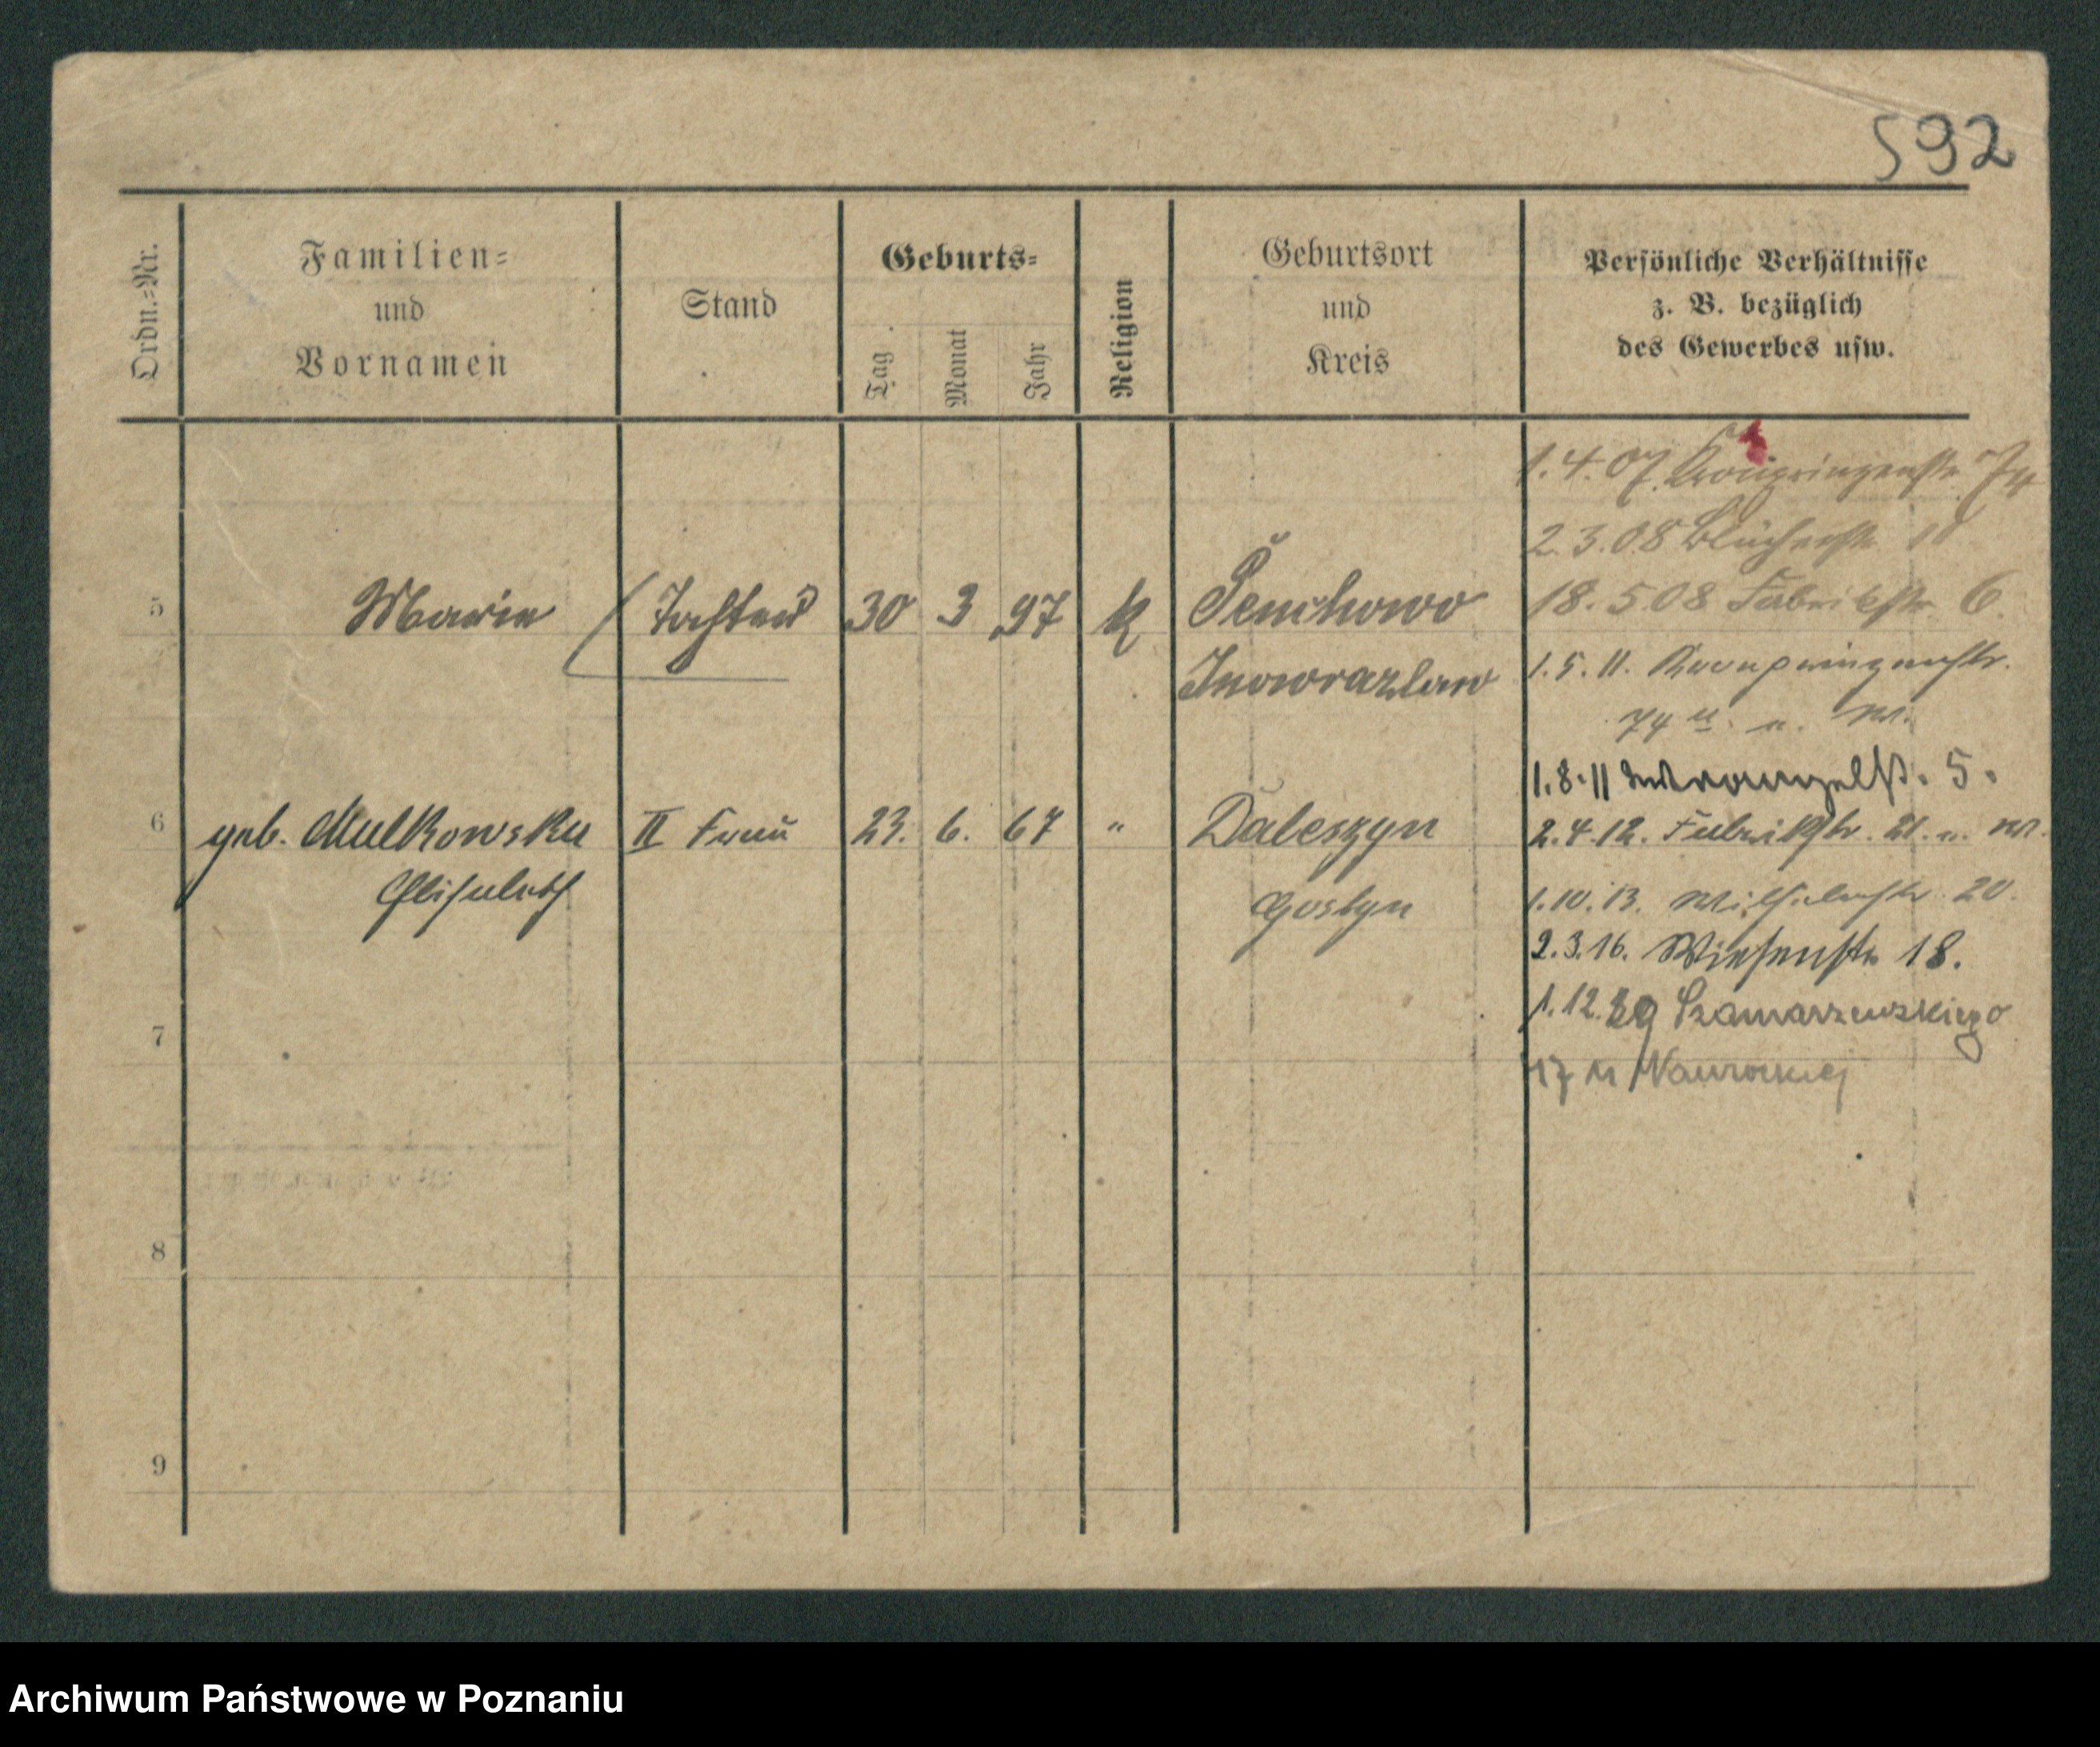 592
Ordn.=Nr.
Familien=
und
Vornamen
Stand
Geburts=
Tag
Monat
Jahr
Religion
Geburtsort
und
Kreis
Persönliche Verhältnisse
z. B. bezüglich
des Gewerbes usw.
1.4.07 Kronprinzenstr 74
2.3.08 Blücherstr 11
5 Marie Tochter 30 3 97 k 18.5.08 Fabrikstr. 6
Inowrazlaw 1.5.11. Kronprinzenstr.
74 u. n. W.
1.8.11 Wrangelstr. 5.
6 geb. Malkowska II Frau 23. 6. 67 " Daleszyn 2.4.12. Fabrikstr. 21. n. W.
Elisabeth Gostyn 1.10.13. Wilhelmstr 20.
2.3.16. Wiesenstr 18.
7 1.12.29 Szamarzewskiego
17 u Nawrockiej
8
9
Archiwum Państwowe w Poznaniu